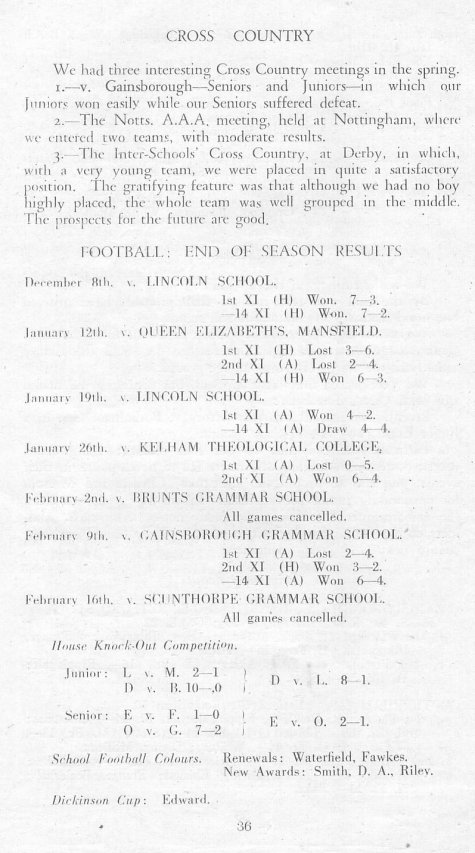 CROSS COUNTRY
We had three interesting Cross Country meetings in the spring.
1.—v. Gainsborough—Seniors and Juniors—in which our
Juniors won easily while our Seniors suffered defeat.
2.—The Notts. A.A.A. meeting, held at Nottingham, where
we entered two teams, with moderate results.
3.—The Inter-Schools' Cross Country, at Derby, in which,
with a very young team, we were placed in quite a satisfactory
position. The gratifying feature was that although we had no boy
highly placed, the whole team was well grouped in the middle.
The prospects for the future are good.
FOOTBALL: END OF SEASON RESULTS
December 8th. v. LINCOLN SCHOOL.
1st XI (H) Won. 7—3.
—14 XI (H) Won. 7—2.
January 12th. v. QUEEN ELIZABETH'S, MANSFIELD.
1st XI (H) Lost 3—6.
2nd XI (A) Lost 2—4.
—14 XI (H) Won 6—3.
January 19th. v. LINCOLN SCHOOL.
1st XI (A) Won 4—2.
—14 XI (A) Draw 4—4.
January 26th. v. KELHAM THEOLOGICAL COLLEGE,
1st XI (A) Lost 0—5.
2nd XI (A) Won 6—4.
February 2nd. v. BRUNTS GRAMMAR SCHOOL.
All games cancelled.
February 9th. v. GAINSBOROUGH GRAMMAR SCHOOL.
1st XI (A) Lost 2—4.
2nd XI (H) Won 3—2.
—14 XI (A) Won 6—4.
February 16th. v. SCUNTHORPE GRAMMAR SCHOOL.
All games cancelled.
House Knock-Out Competition.
Junior: L v. M. 2—1
D v. B. 10—0
D v. L. 8—1.
Senior: E v. F. 1—0
O v. G. 7—2
E v. O. 2—1.
School Football Colours. Renewals: Waterfield, Fawkes.
New Awards: Smith, D. A., Riley.
Dickinson Cup: Edward.
36